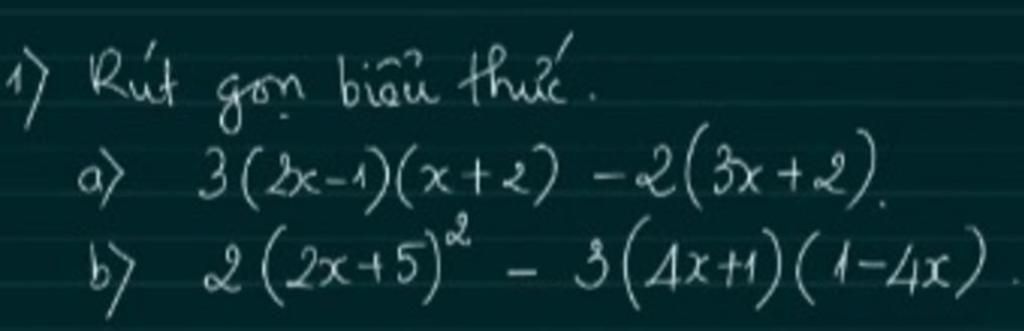 1) Rút gọn biểu thức.
a) 3(2x-1)(x+2) -2(3x+2).
b) 2(2x+5)² - 3(4x+1)(1-4x).